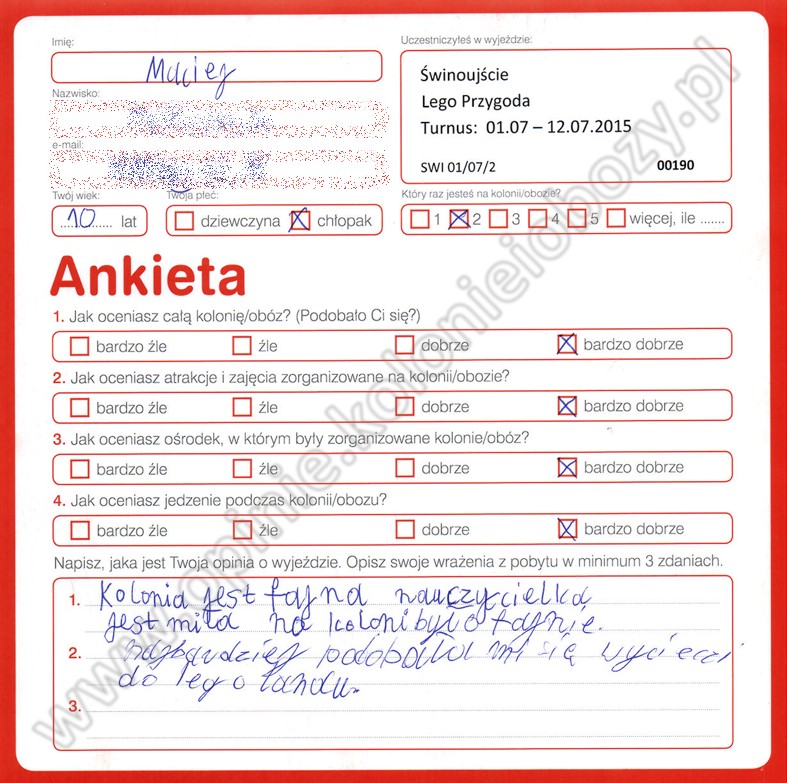 Imię:
Maciej
Uczestniczyłeś w wyjeździe:
Świnoujście
Lego Przygoda
Turnus: 01.07 – 12.07.2015
SWI 01/07/2 00190
Nazwisko:
e-mail:
Twój wiek:
10 lat
Twoja płeć:
dziewczyna chłopak
Który raz jesteś na kolonii/obozie?
1 2 3 4 5 więcej, ile .......
Ankieta
1. Jak oceniasz całą kolonię/obóz? (Podobało Ci się?)
bardzo źle źle dobrze bardzo dobrze
2. Jak oceniasz atrakcje i zajęcia zorganizowane na kolonii/obozie?
bardzo źle źle dobrze bardzo dobrze
3. Jak oceniasz ośrodek, w którym były zorganizowane kolonie/obóz?
bardzo źle źle dobrze bardzo dobrze
4. Jak oceniasz jedzenie podczas kolonii/obozu?
bardzo źle źle dobrze bardzo dobrze
Napisz, jaka jest Twoja opinia o wyjeździe. Opisz swoje wrażenia z pobytu w minimum 3 zdaniach.
1. Kolonia jest fajna nauczycielka
jest miła na koloni było fajnie.
2. Najbardziej podobała mi się
do lego landu.
3.
www.opinie.kolonieiobozy.pl